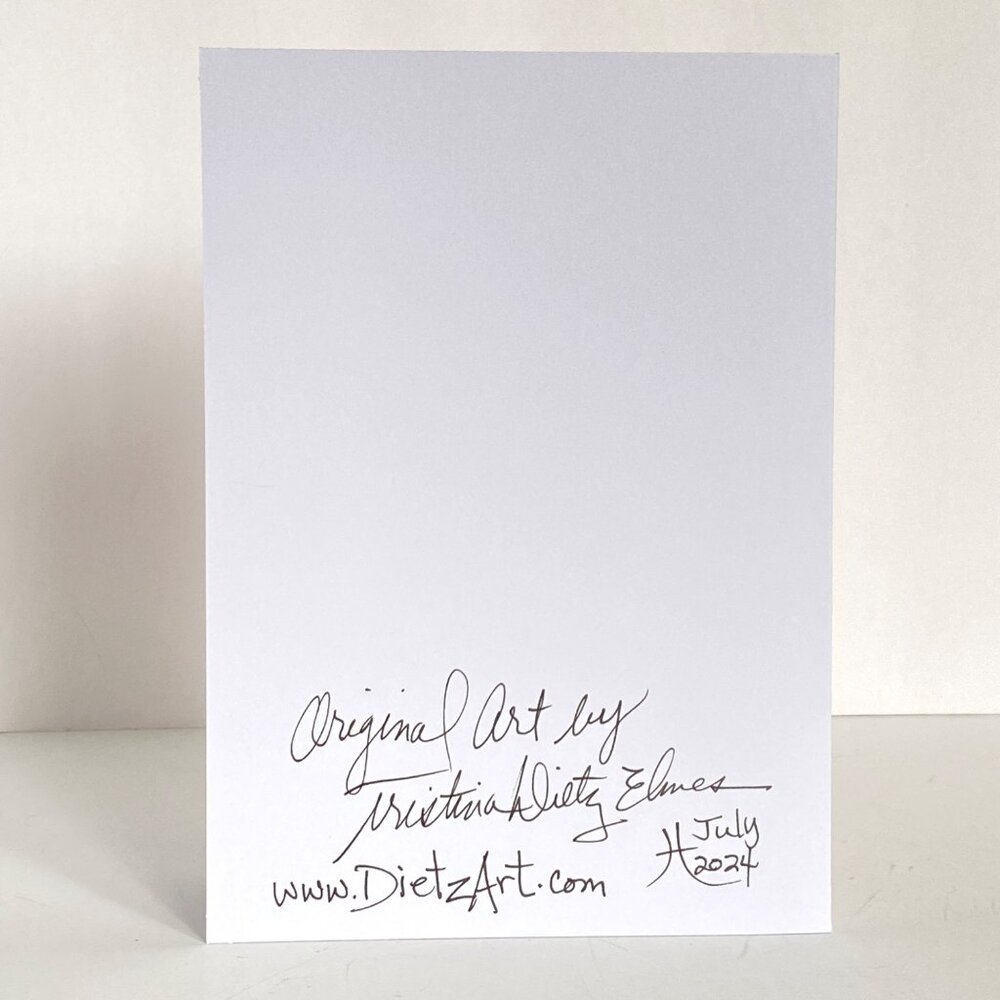 Original Art by
Tristina Dietz Elmes
July
2024
www.DietzArt.com